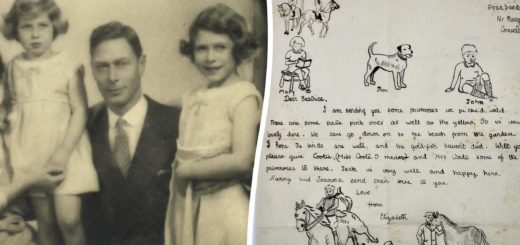 Praa Sands
Mary
Jim
John
Dear Beatrice,
I am sending you some primroses we picked wild.
There are some pale pink ones as well as the yellow. It is very
lovely here. We can go down on to the beach from the garden.
I hope the birds are well, and the goldfish haven't died. Will you
please give Cootie, (Miss Coote I mean) and Mrs some of the
primroses to share. Jack is very well and happy here.
Nanny and send their love to you.
Love
from
Elizabeth